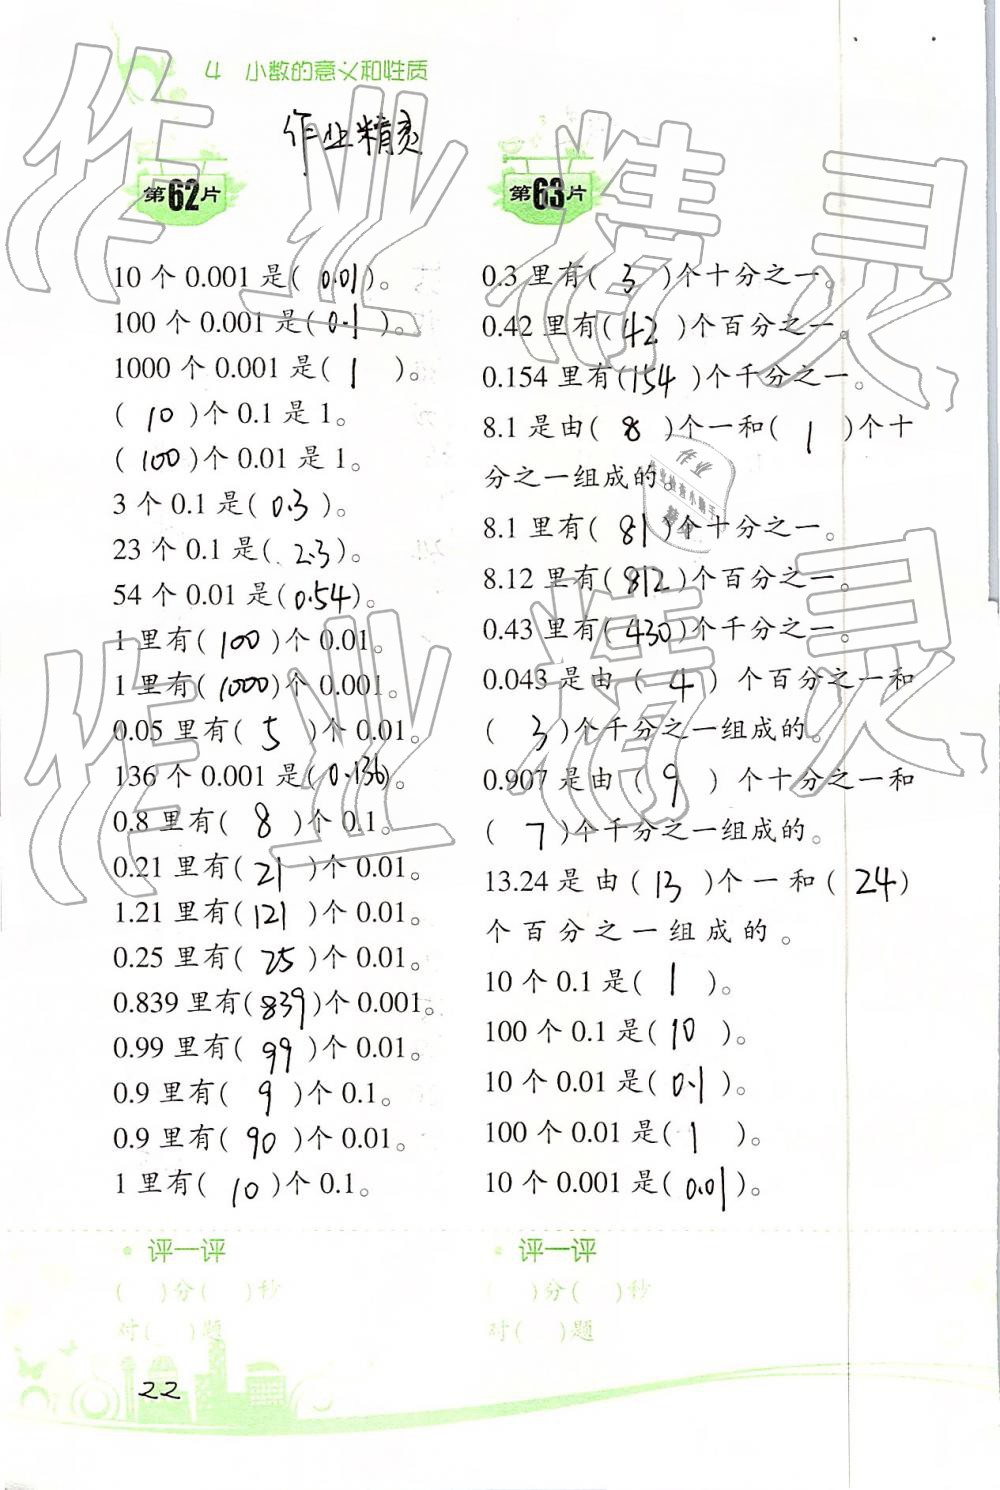 4 小数的意义和性质
作业精灵
第62片
10个0.001是(0.01)。
100个0.001是(0.1)。
1000个0.001是(1)。
(10)个0.1是1。
(100)个0.01是1。
3个0.1是(0.3)。
23个0.1是(2.3)。
54个0.01是(0.54)。
1里有(100)个0.01。
1里有(1000)个0.001。
0.05里有(5)个0.01。
136个0.001是(0.136)。
0.8里有(8)个0.1。
0.21里有(21)个0.01。
1.21里有(121)个0.01。
0.25里有(25)个0.01。
0.839里有(839)个0.001。
0.99里有(99)个0.01。
0.9里有(9)个0.1。
0.9里有(90)个0.01。
1里有(10)个0.1。
评一评
( )分( )秒
对( )题
第63片
0.3里有(3)个十分之一。
0.42里有(42)个百分之一。
0.154里有(154)个千分之一。
8.1是由(8)个一和(1)个十
分之一组成的。
8.1里有(81)个十分之一。
8.12里有(812)个百分之一。
0.43里有(430)个千分之一。
0.043是由(4)个百分之一和
(3)个千分之一组成的。
0.907是由(9)个十分之一和
(7)个千分之一组成的。
13.24是由(13)个一和(24)
个百分之一组成的。
10个0.1是(1)。
100个0.1是(10)。
10个0.01是(0.1)。
100个0.01是(1)。
10个0.001是(0.01)。
评一评
( )分( )秒
对( )题
22
作业精灵
作业精灵
作业